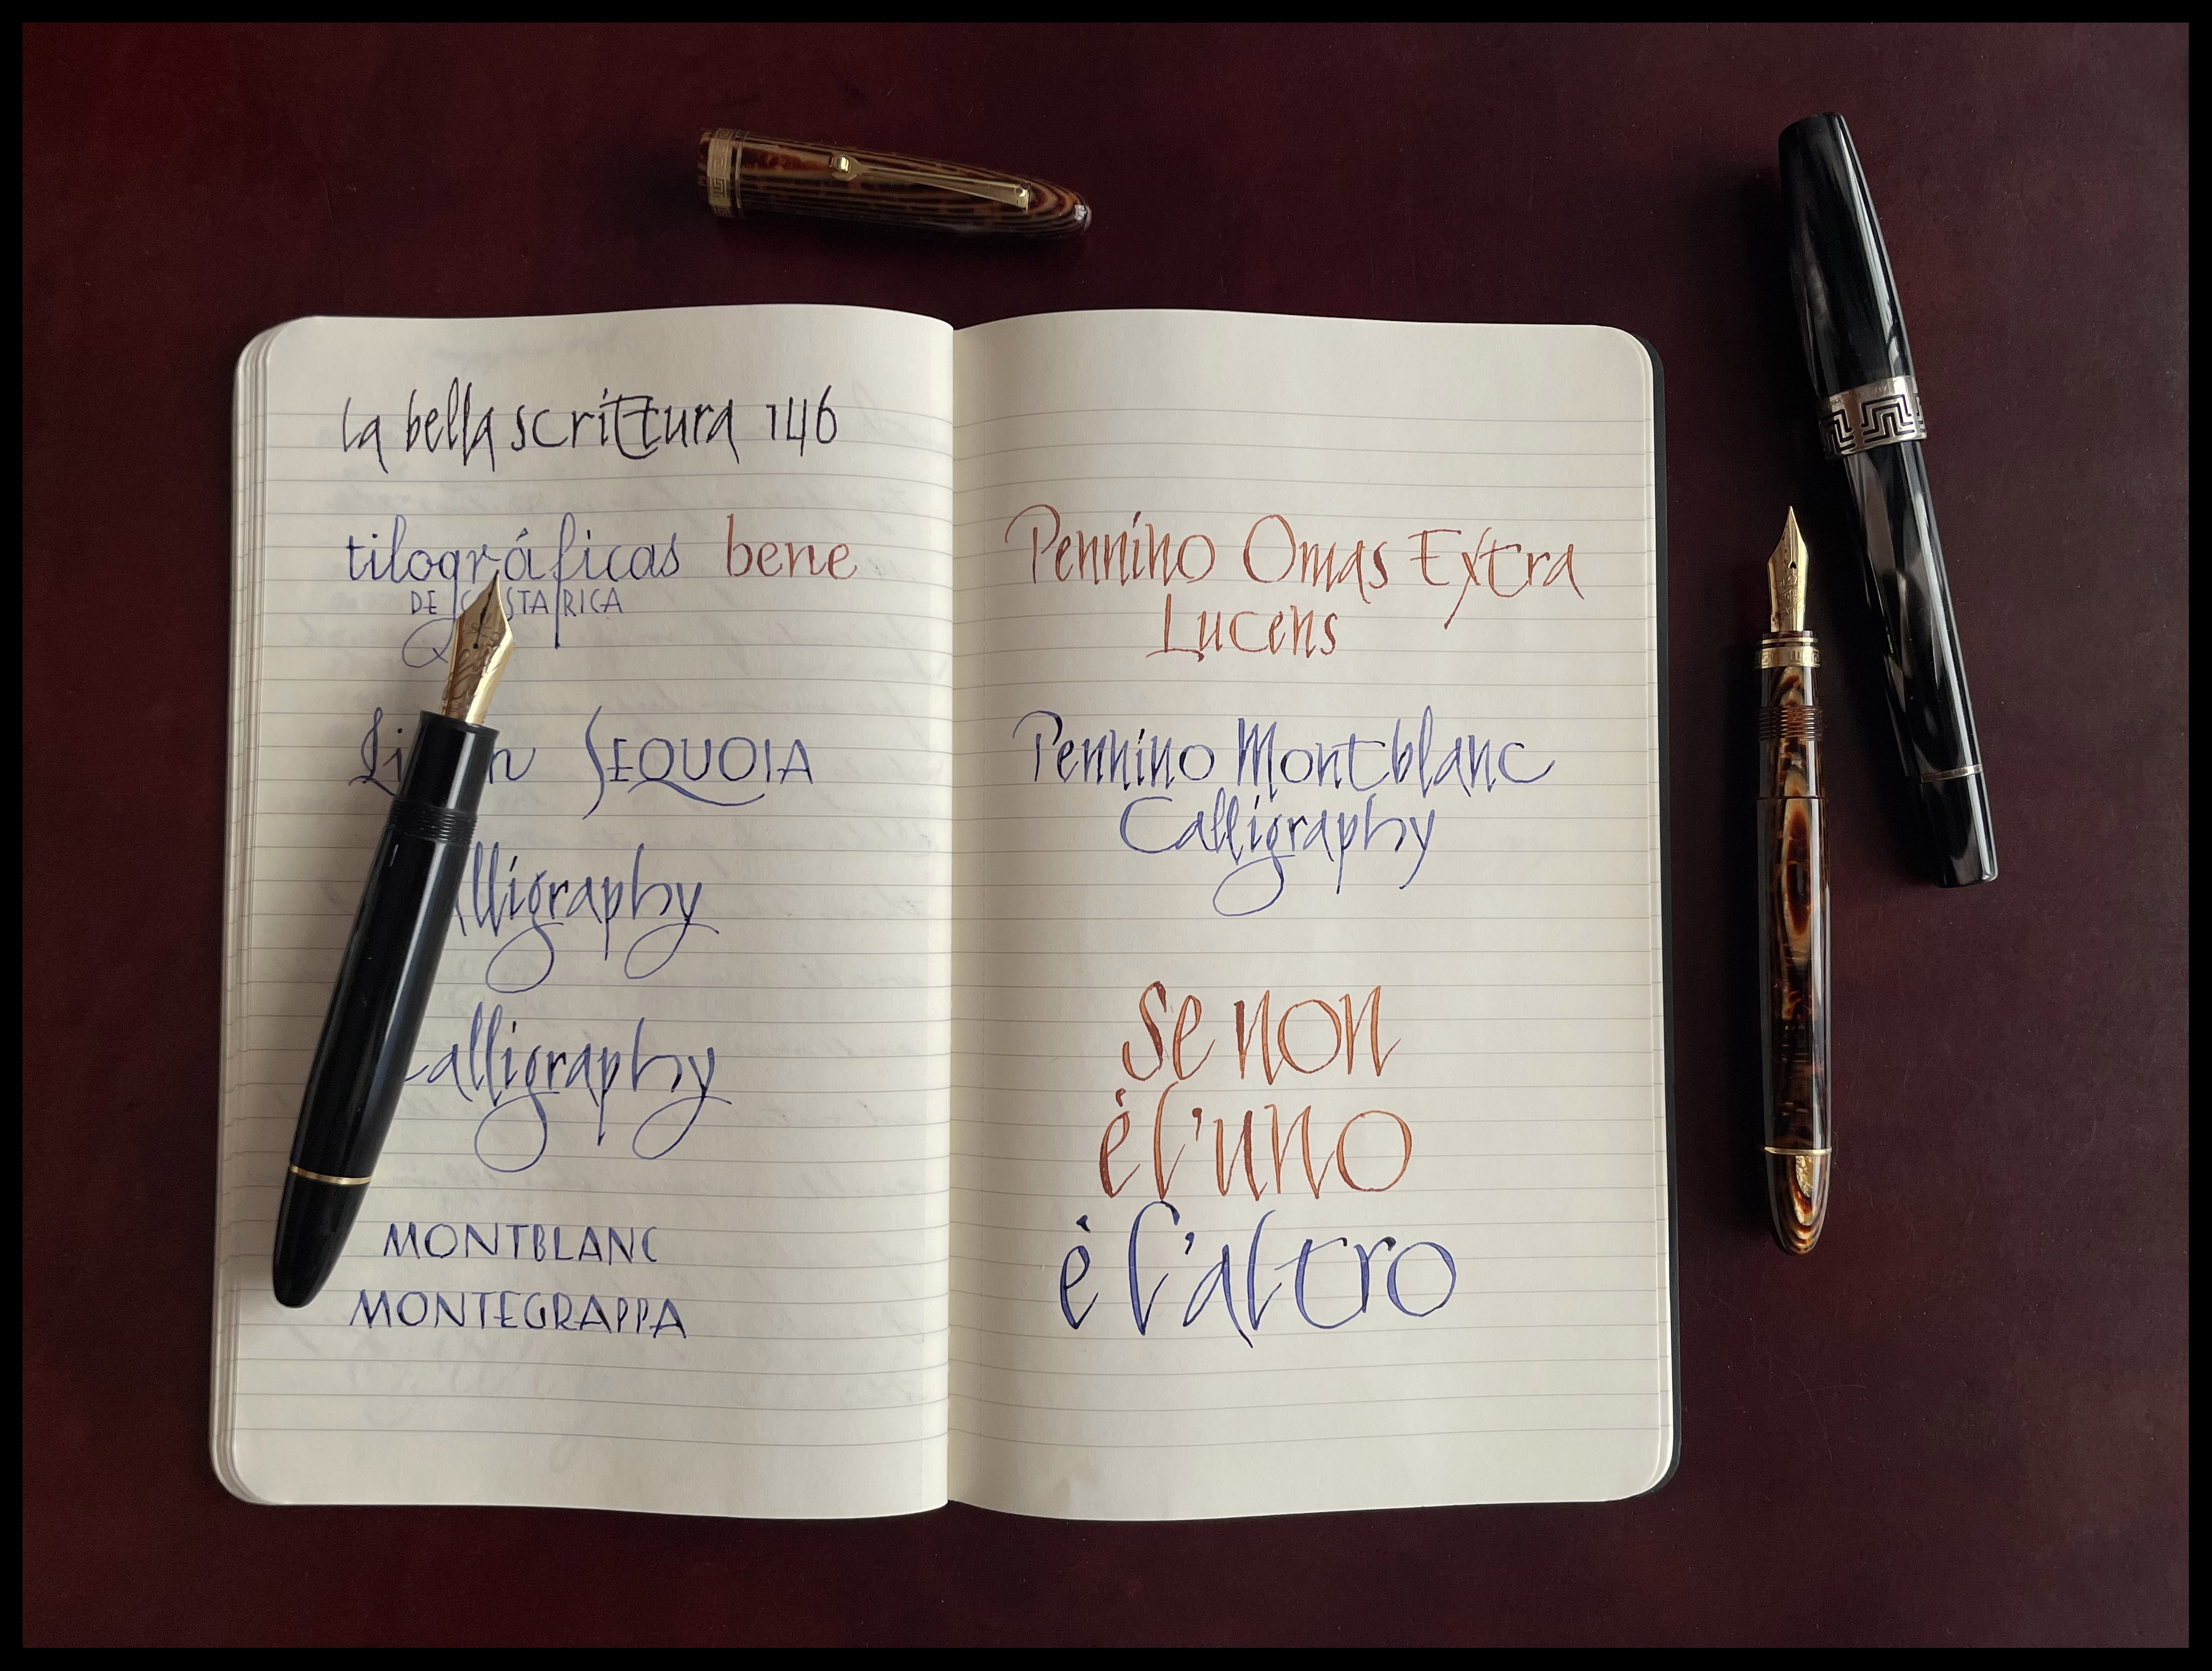 la bella scrittura 146
tilográficas bene
DE COSTA RICA
SEQUOIA
Calligraphy
MONTBLANC
MONTEGRAPPA
Pennino Omas Extra
Lucens
Pennino Montblanc
Calligraphy
se non
è l'uno
è l'altro